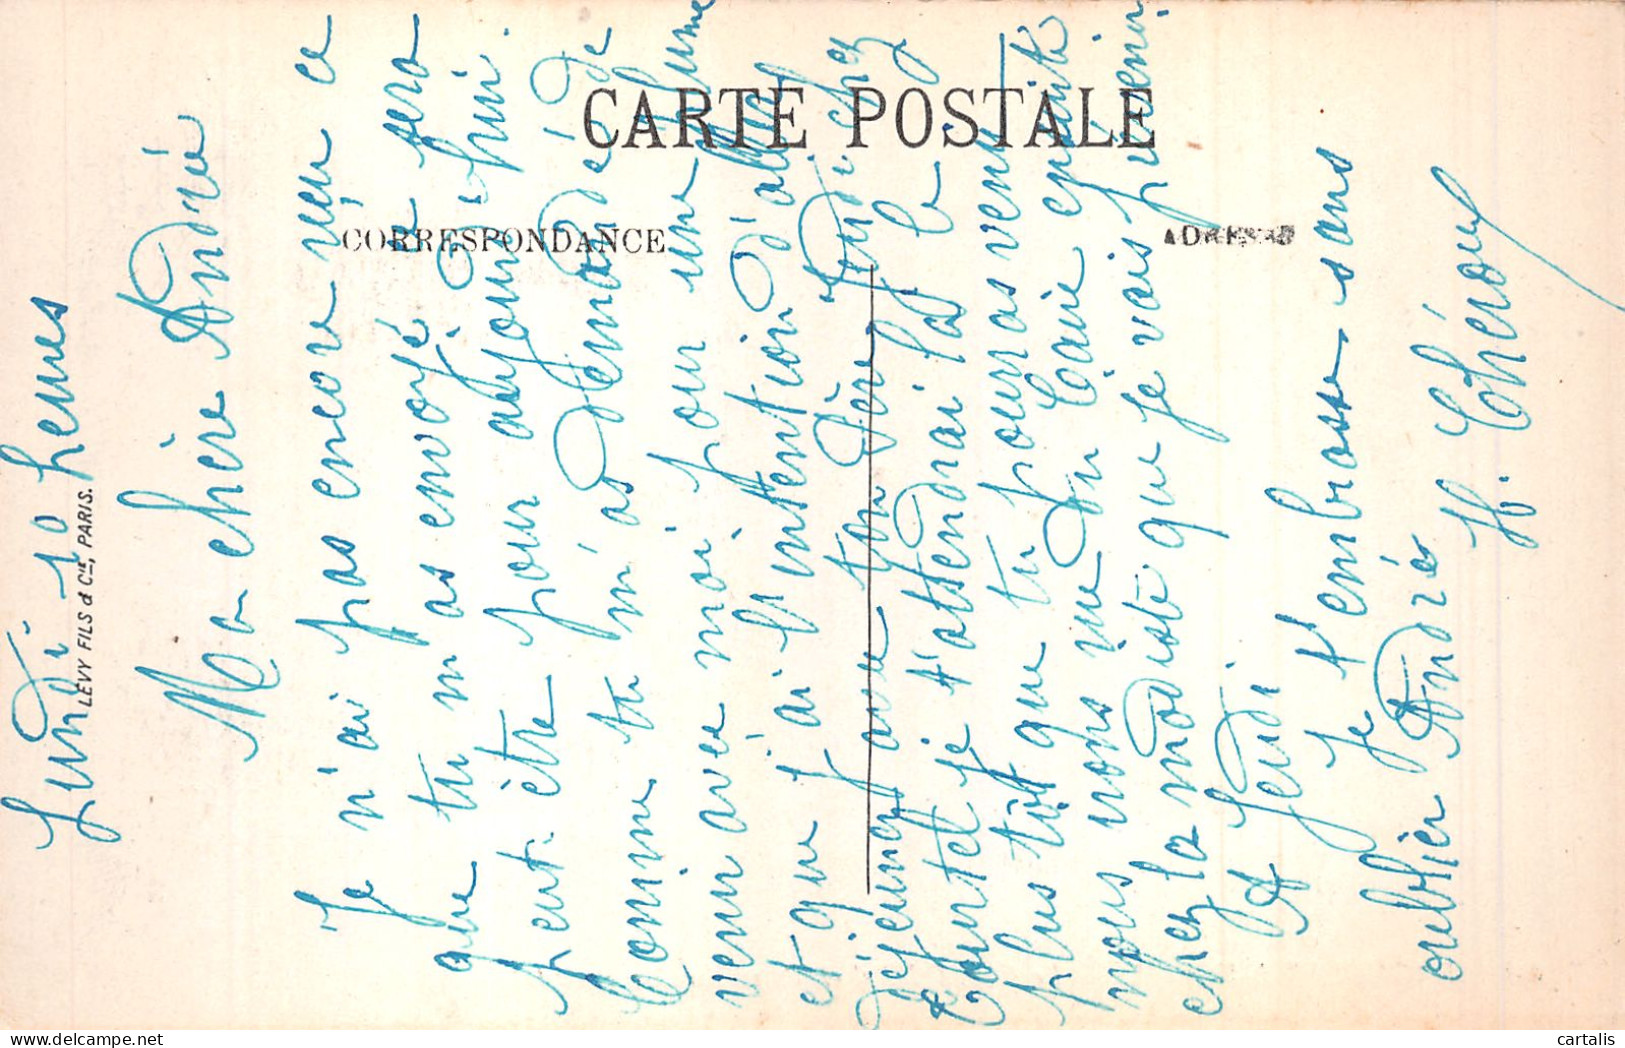 CARTE POSTALE
CORRESPONDANCE
LEVY FILS & Cie, PARIS.
Lundi 10 heures
Ma chère Andrée
Je n'ai pas encore reçu ce
que tu m'as envoyé, ce sera
peut-être pour aujourd'hui.
Comme tu m'as demandé de
venir avec moi pour une plume
et que j'ai l'intention d'aller
déjeuner avec ton Père Jeudi chez
je t'attendrai là le
plus tôt que tu pourras venir
nous nous ensuite
chez la modiste que je vais prévenir
A Jeudi
Je t'embrasse sans
oublier Andrée
H. Théroux
cartalis